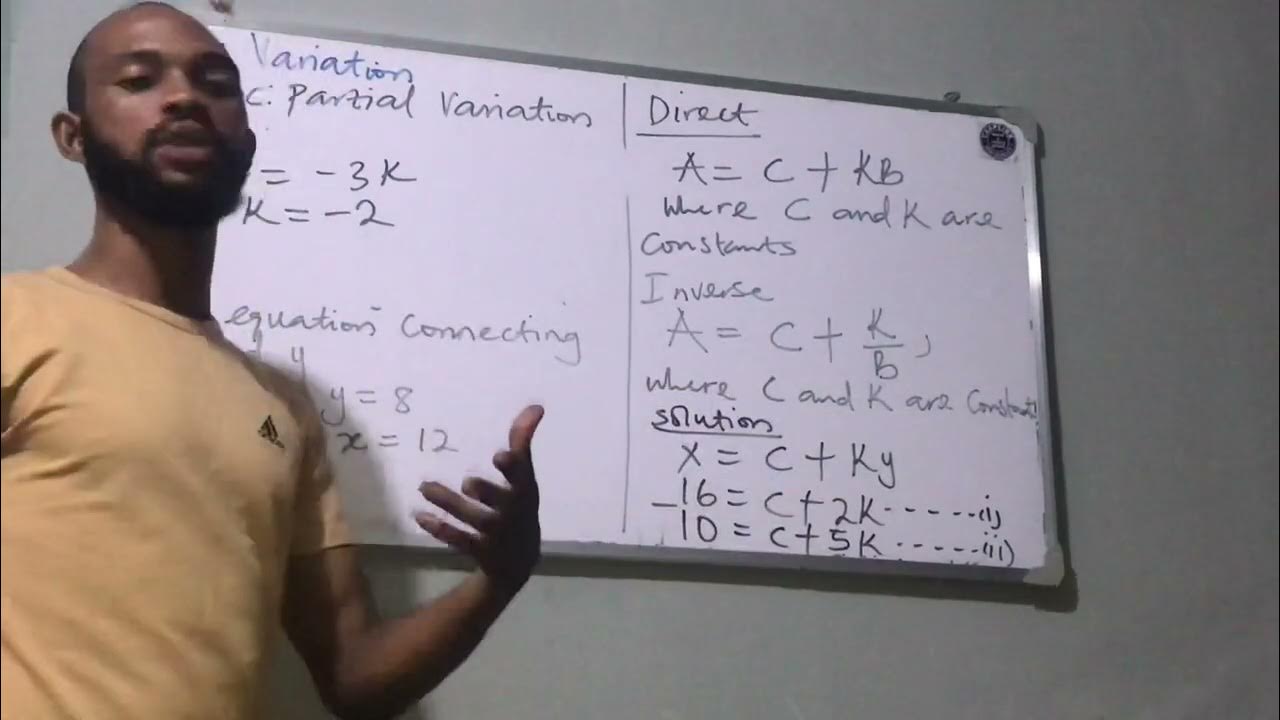 Variation
C: Partial Variation
= -3K
K = -2
equation connecting
y
y = 8
x = 12
Direct
A = C + KB
where C and K are
Constants
Inverse
A = C + K/B,
where C and K are Constants
solution
X = C + Ky
-16 = C + 2K ----- (i)
10 = C + 5K ----- (ii)